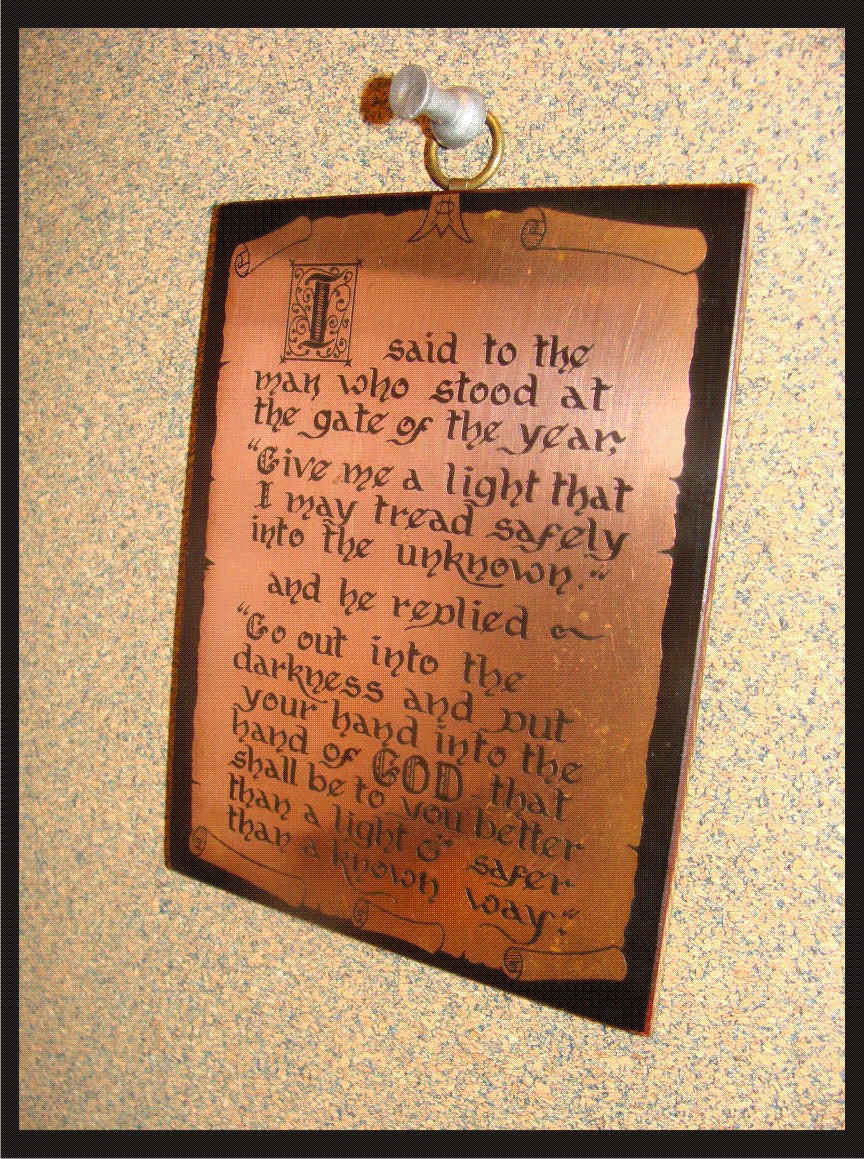 I said to the
man who stood at
the gate of the year,
“Give me a light that
I may tread safely
into the unknown.“
and he replied ~
“Go out into the
darkness and put
your hand into the
hand of GOD that
shall be to you better
than a light & safer
than a known way.“